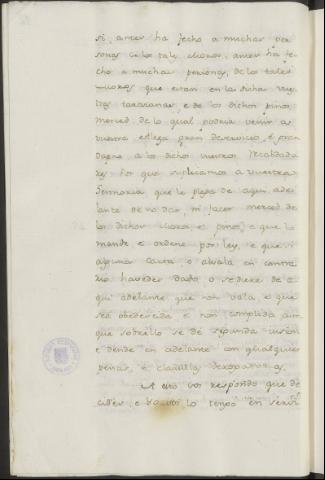 si, antes ha fecho a muchas per
sonas de los tales
cho a muchas personas, de los tales
que estan en las dichas vues
tras e de los dichos pinos,
merced, de lo qual podria venir a
vuestra alteza gran deservicio, e gran
dapno a los dichos vuestros recabdado
res. Por que suplicamos a vuestra
Señoria que le plega de aqui ade
lante de no dar, ni facer merced de
los dichos e pinos, e que lo
mande e ordene por ley, e que si
alguna carta o alvala en contra
rio havedes dado, o se diere de a
qui adelante, que non vala, e que
sea obedecida e non complida aun
que sobrello se dé segunda jusion
e dende en adelante con qualesquier
penas, e clausulas derogatorias.
A esto vos respondo que de
cides, e yo lo tengo en servi